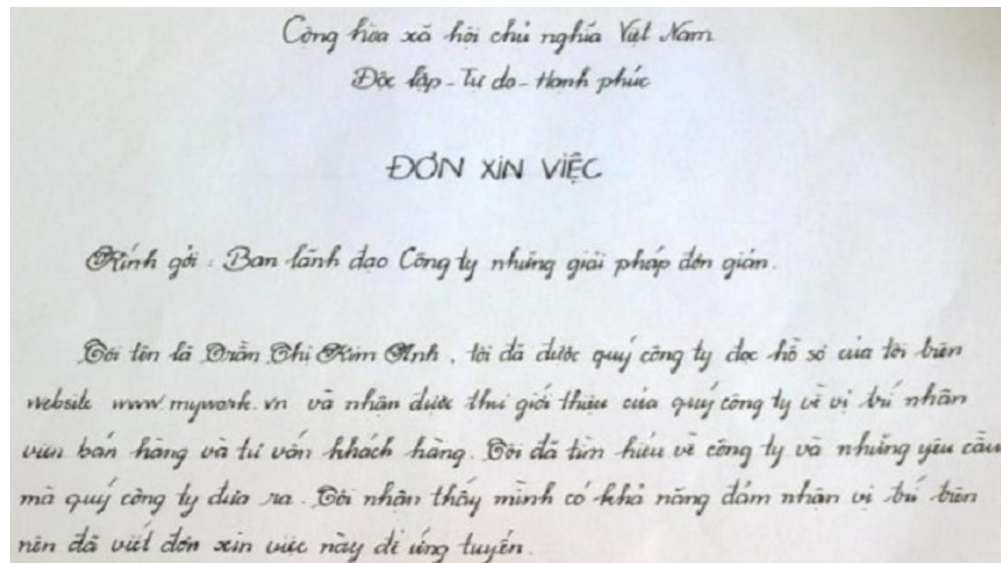 Cộng hòa xã hội chủ nghĩa Việt Nam
Độc lập - Tự do - Hạnh phúc
ĐƠN XIN VIỆC
Kính gởi : Ban lãnh đạo Công ty những giải pháp đơn giản.
Tôi tên là Trần Thị Kim Anh, tôi đã được quý công ty đọc hồ sơ của tôi trên
website www.mywork.vn và nhận được thư giới thiệu của quý công ty về vị trí nhân
viên bán hàng và tư vấn khách hàng. Tôi đã tìm hiểu về công ty và những yêu cầu
mà quý công ty đưa ra. Tôi nhận thấy mình có khả năng đảm nhận vị trí trên
nên đã viết đơn xin việc này để ứng tuyển.